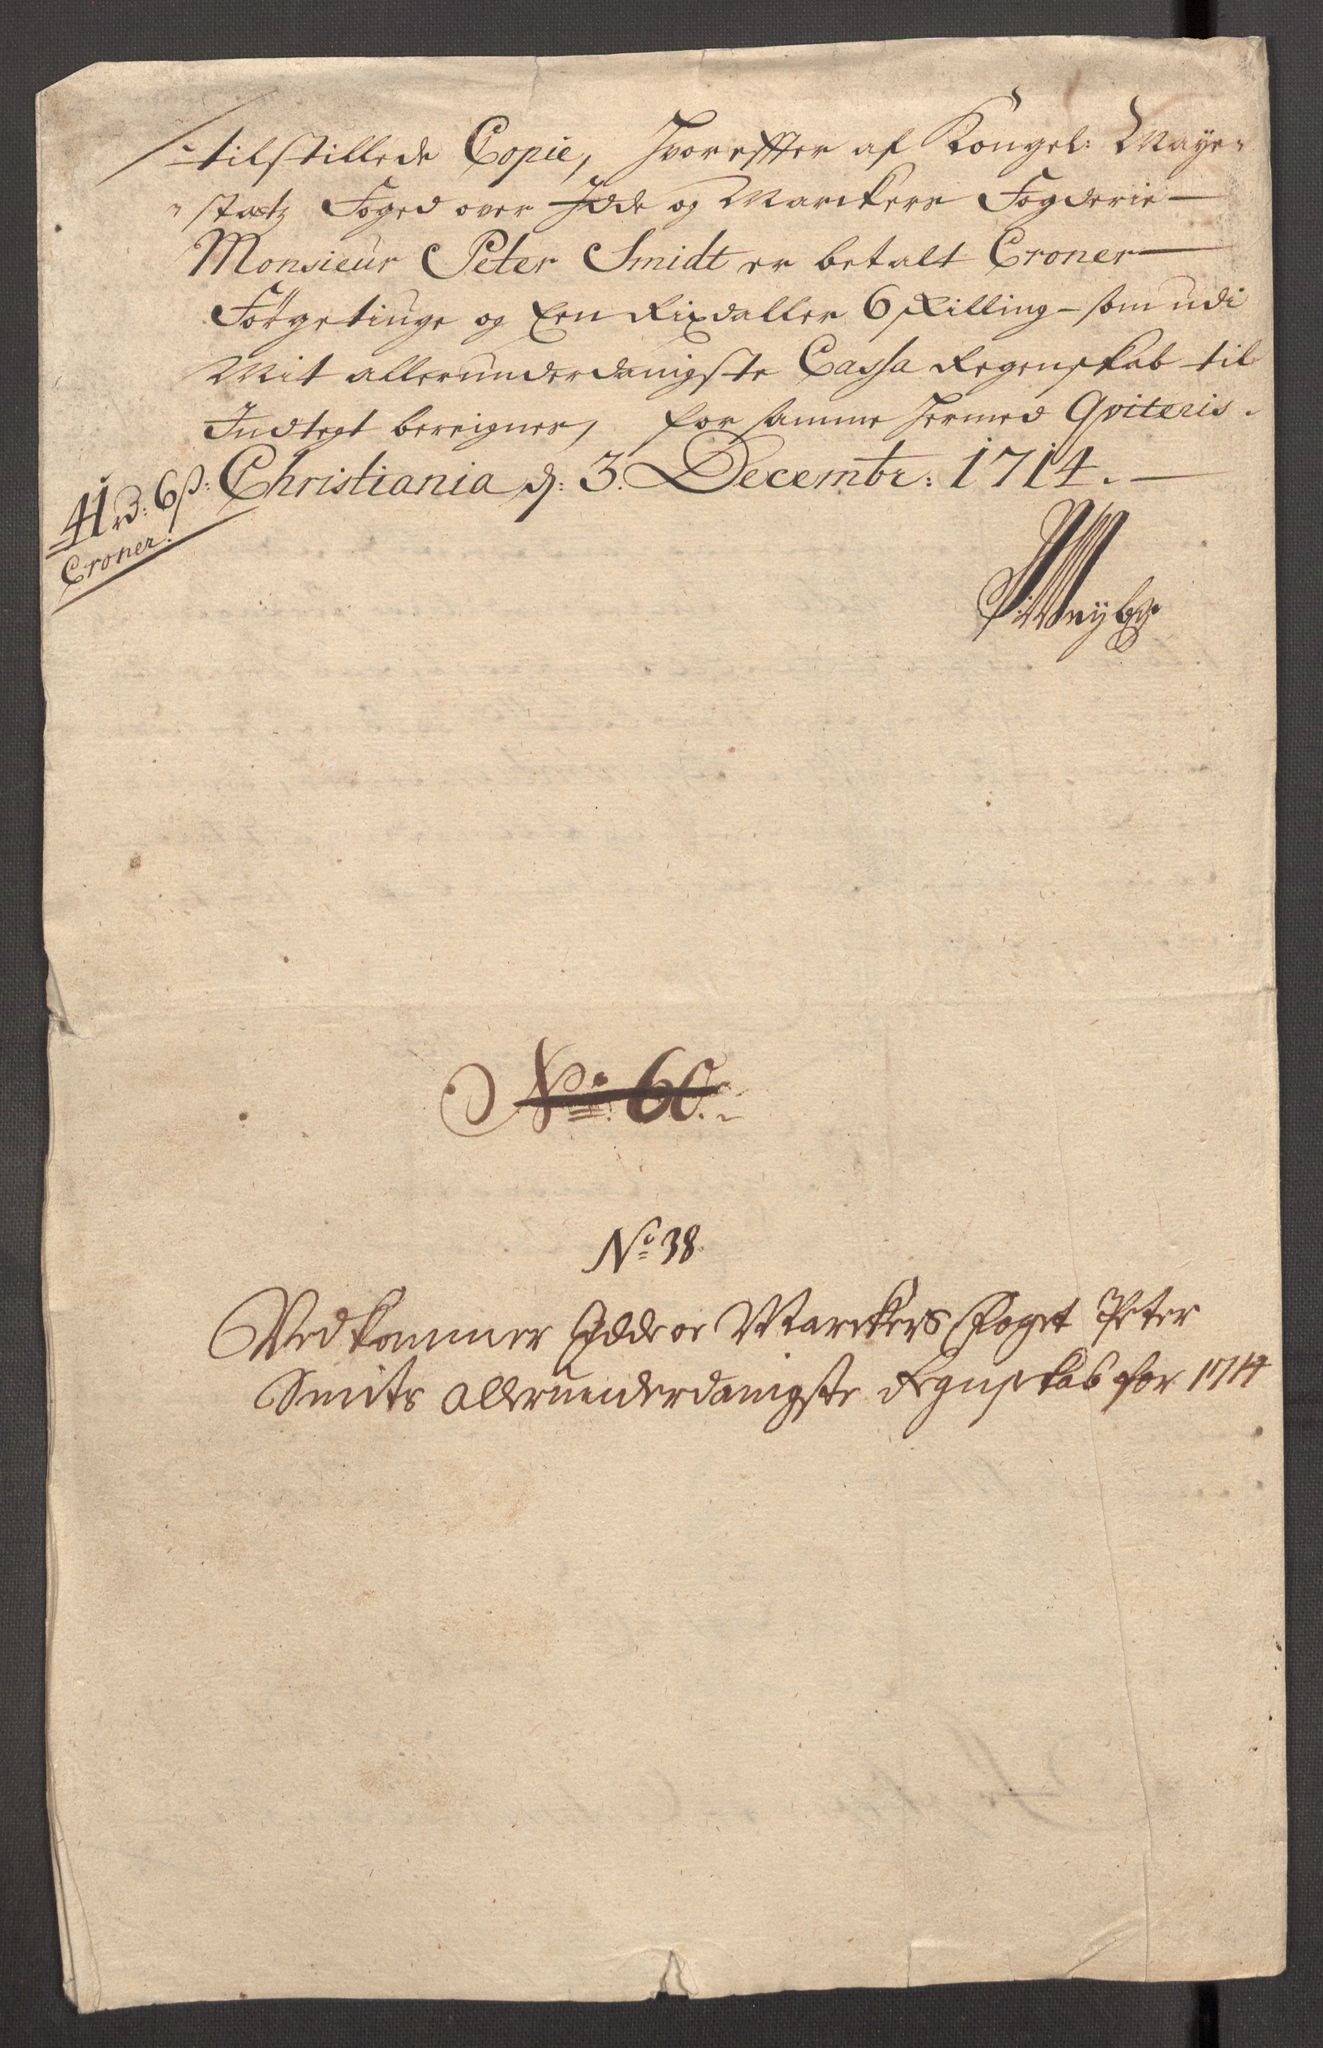 tilstillede Copie, Hvorefter af Kongel: Maye-
stætz Foged over Idde og Marckers Fogderie
Monsieur Peter Smidt er betalt Croner
Førgetiuge og Een Rixdaller 6 skilling som udi
Mit allerunderdanigste Cassa Regenskab til
Indtegt bereignes, for samme hermed Qviteris.
Christiania d: 3. Decembr: 1714.
41 rd: 6 s:
Croner:
No: 60.
No 38
Vedkommer Idde oc Marckers Foget Peter
Smits allerunderdanigste Regnskab for 1714